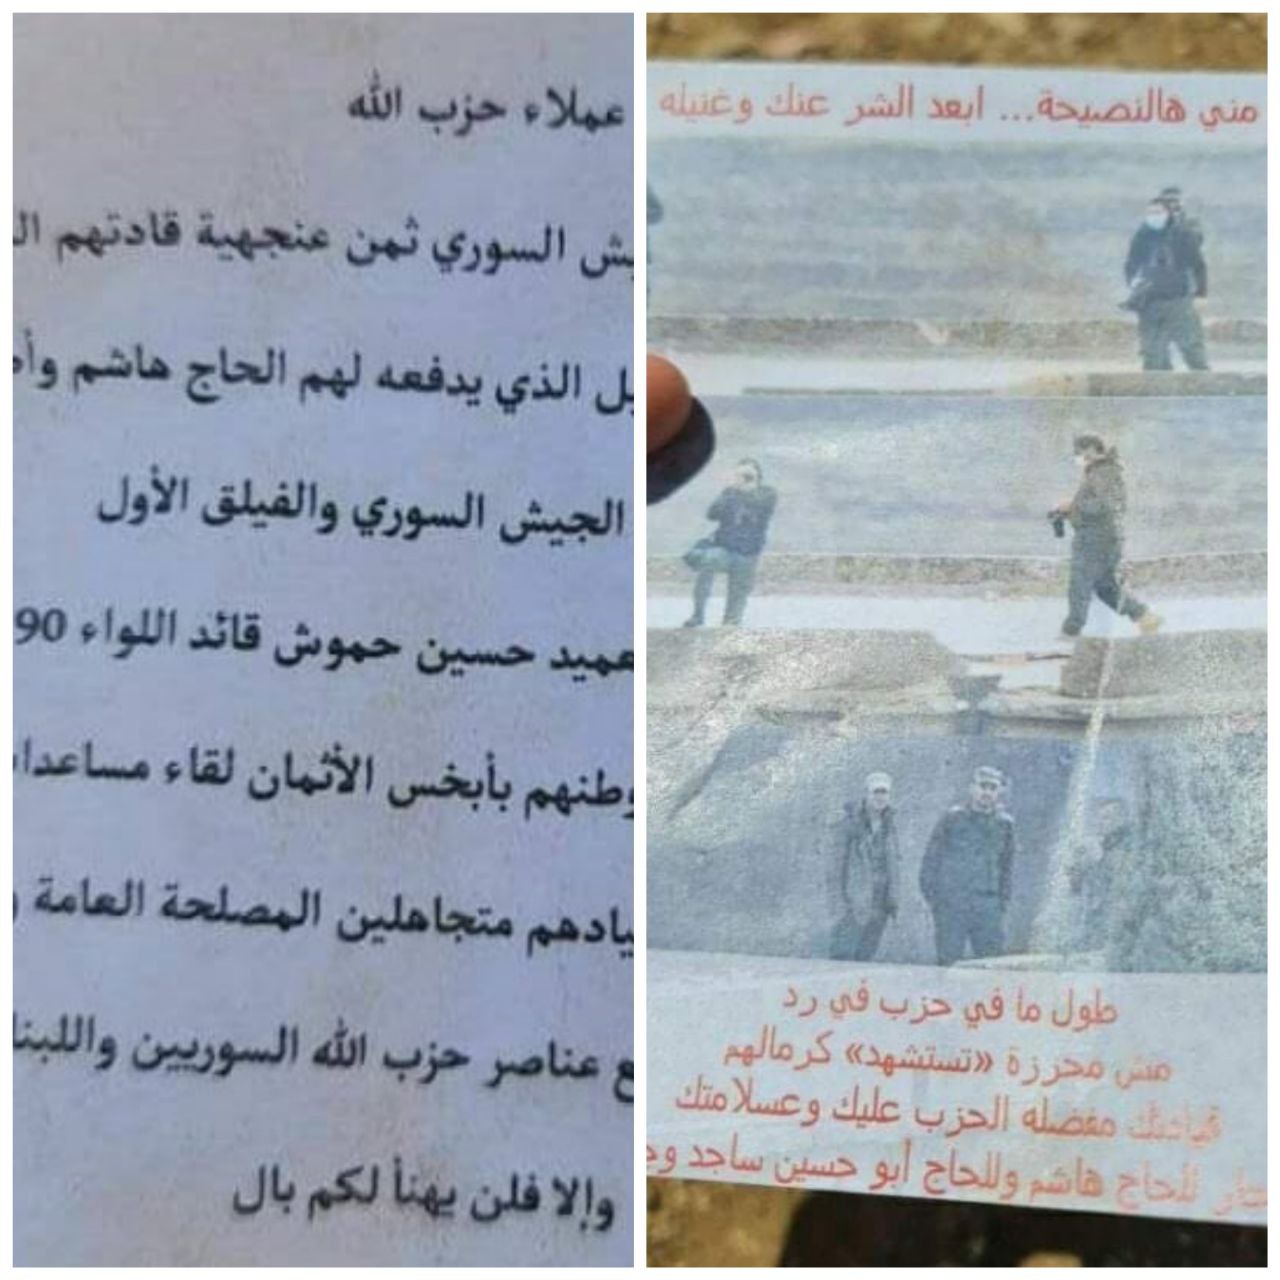 عملاء حزب الله
السوري ثمن عنجهية قادتهم
الذي يدفعه لهم الحاج هاشم
الجيش السوري والفيلق الأول
عميد حسين حموش قائد اللواء 90
وطنهم بأبخس الأثمان لقاء
متجاهلين المصلحة العامة
عناصر حزب الله السوريين
وإلا فلن يهنأ لكم بال
مني هالنصيحة... ابعد الشر عنك وغنيله
طول ما في حزب في رد
مش محرزة «تستشهد» كرمالهم
قيادتك مفضله الحزب عليك وعسلامتك
للحاج هاشم وللحاج أبو حسين ساجد